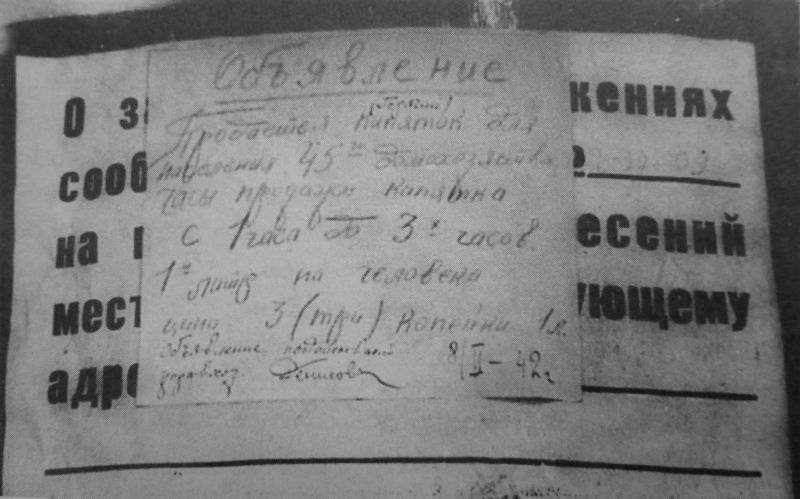 Объявление
(горячий)
Продается кипяток для
населения 45го домохозяйства
часы продажи кипятка
с 1 часа до 3х часов
1н литр на человека
цена 3 (три) копейки 1 л.
Объявление
управхоз Денисова 8/II – 42 г
О за жениях
сооб
на есений
мест ующему
адре